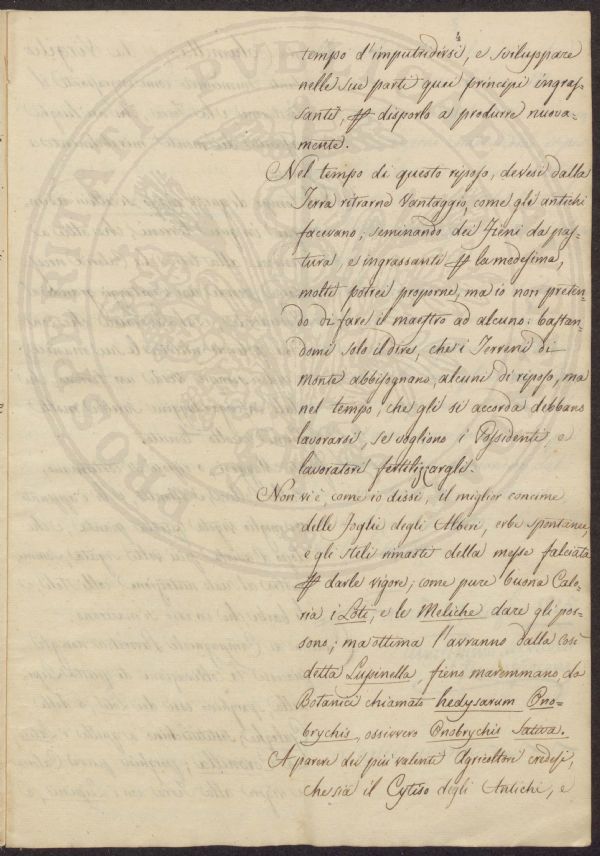 4
tempo d'imputridirsi, e sviluppare
nelle sue parti quei principi ingras-
santi, per disporlo a produrre nuova-
mente.
Nel tempo di questo riposo, devesi dalla
Terra ritrarne Vantaggio, come gli antichi
facevano, seminando dei Fieni da pas-
tura, e ingrassanti per la medesima,
molti potrei proporne, ma io non preten-
do di fare il maestro ad alcuno: bastan-
domi solo il dire, che i Terreni di
monte abbisognano, alcuni di riposo, ma
nel tempo, che gli si accorda debbano
lavorarsi, se vogliono i Possidenti e
lavoratori fertilizzargli.
Non vi è, come io dissi, il miglior concime
delle foglie degli Alberi, erbe spontanee,
e gli steli rimasti della messe falciata
per darle vigore; come pure buona Calo-
ria i Loti, e le Meliche dare gli pos-
sono; ma ottima l'avranno dalla così
detta Lupinella, fieno maremmano, da
Botanici chiamato hedysarum Ono-
brychis, ossivvero Onobrychis Sativa.
A parere dei più valenti Agricoltori credesi,
che sia il Cytiso degli Antichi, e
PROSPE RITATI PVBL